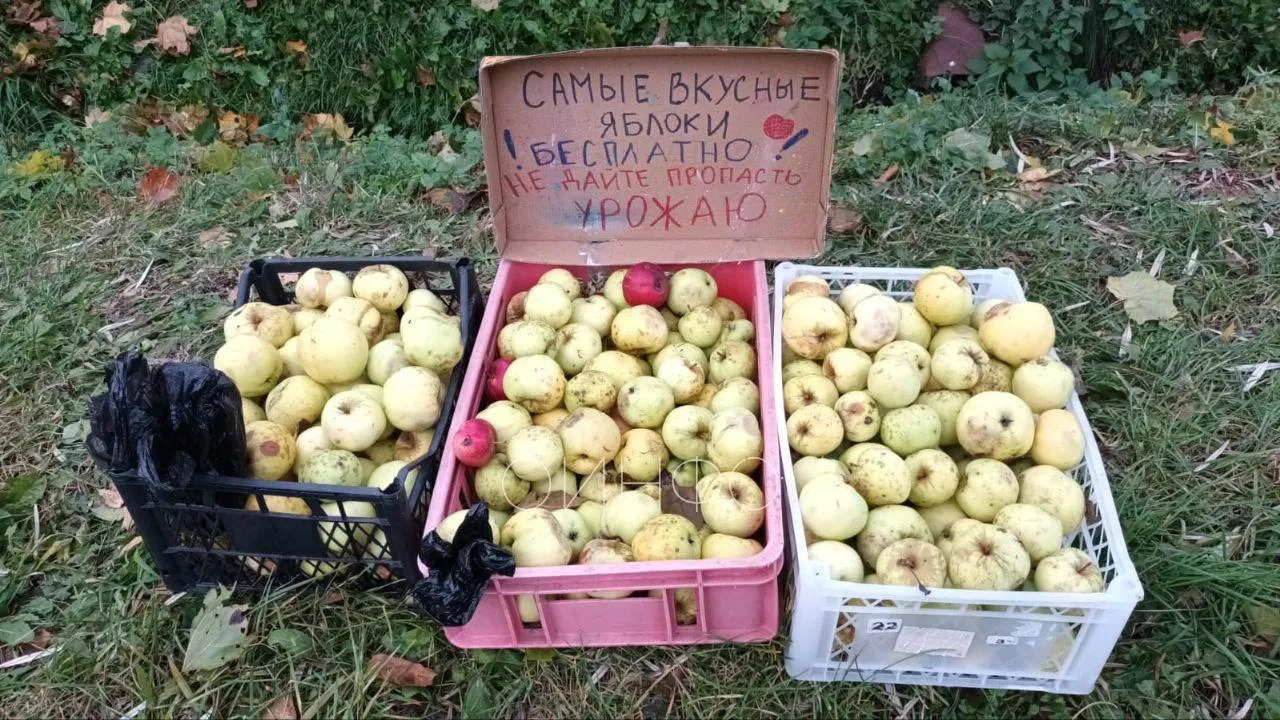 САМЫЕ ВКУСНЫЕ
ЯБЛОКИ
! БЕСПЛАТНО !
НЕ ДАЙТЕ ПРОПАСТЬ
УРОЖАЮ
ОИНФО
22